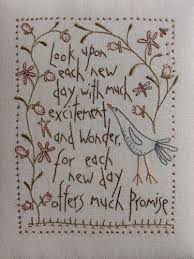 Look upon
each new
day, with much
excitement
and wonder,
for each
new day
offers much Promise